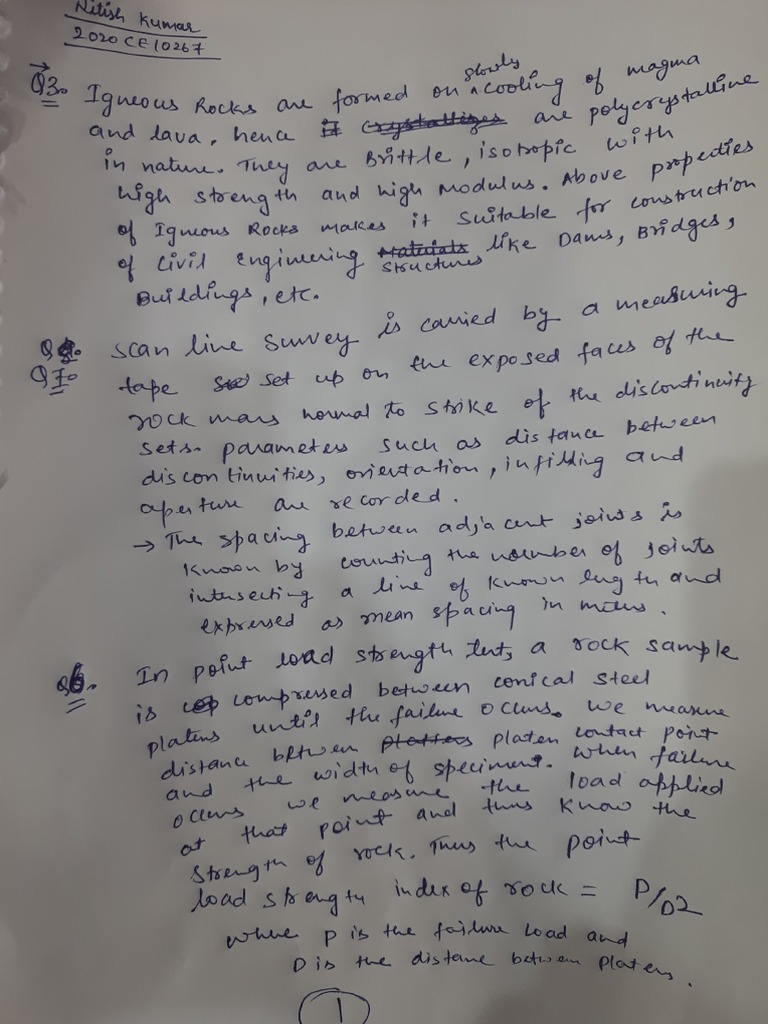 Nitish Kumar
2020CE10267
Q3. Igneous Rocks are formed on slowly cooling of magma
and lava, hence it crystallizes are polycrystalline
in nature. They are Brittle, isotropic with
high strength and high Modulus. Above properties
of Igneous Rocks makes it suitable for construction
of Civil Engineering Materials structures like Dams, Bridges,
Buildings, etc.
Q7. Scan line survey is carried by a measuring
tape set set up on the exposed faces of the
rock mass normal to strike of the discontinuity
sets. parameters such as distance between
discontinuities, orientation, infilling and
aperture are recorded.
→ The spacing between adjacent joints is
known by counting the number of joints
intersecting a line of known length and
expressed as mean spacing in meters.
Q6. In point load strength test, a rock sample
is compressed between conical steel
platens until the failure occurs. We measure
distance between platters platen contact point
and the width of specimen. When failure
occurs we measure the load applied
at that point and thus know the
strength of rock. Thus the point
load strength index of rock = P/D2
where P is the failure load and
D is the distance between Platens.
1